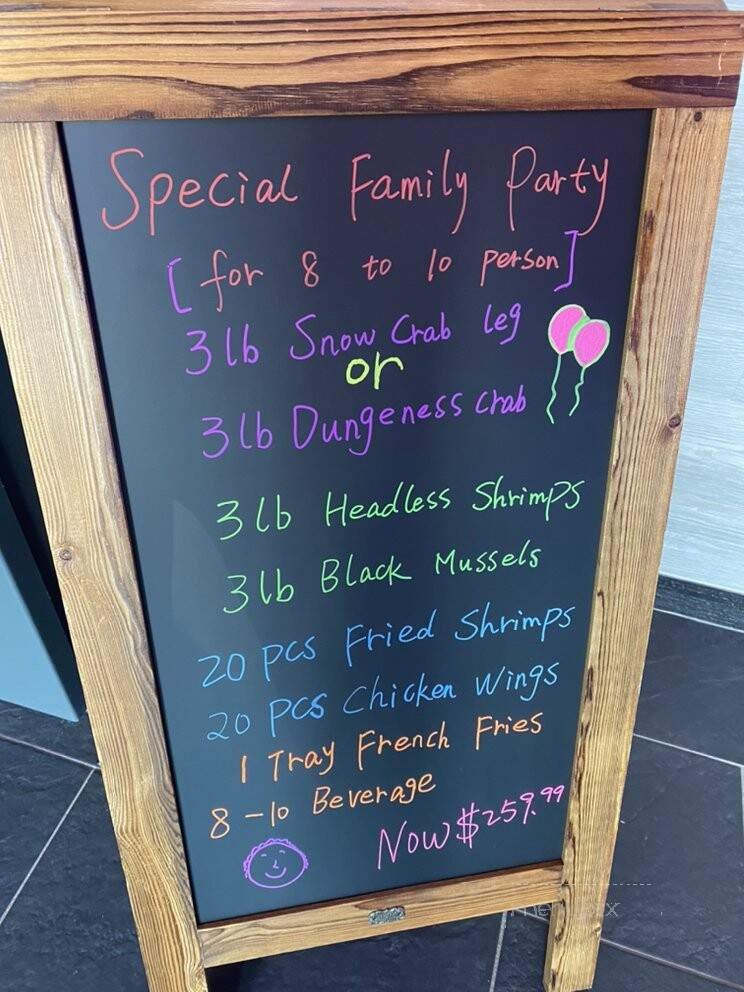 Special Family Party
[for 8 to 10 person]
3 lb Snow Crab leg
or
3 lb Dungeness crab
3 lb Headless Shrimps
3 lb Black Mussels
20 pcs Fried Shrimps
20 pcs Chicken Wings
1 Tray French Fries
8-10 Beverage
Now $259.99